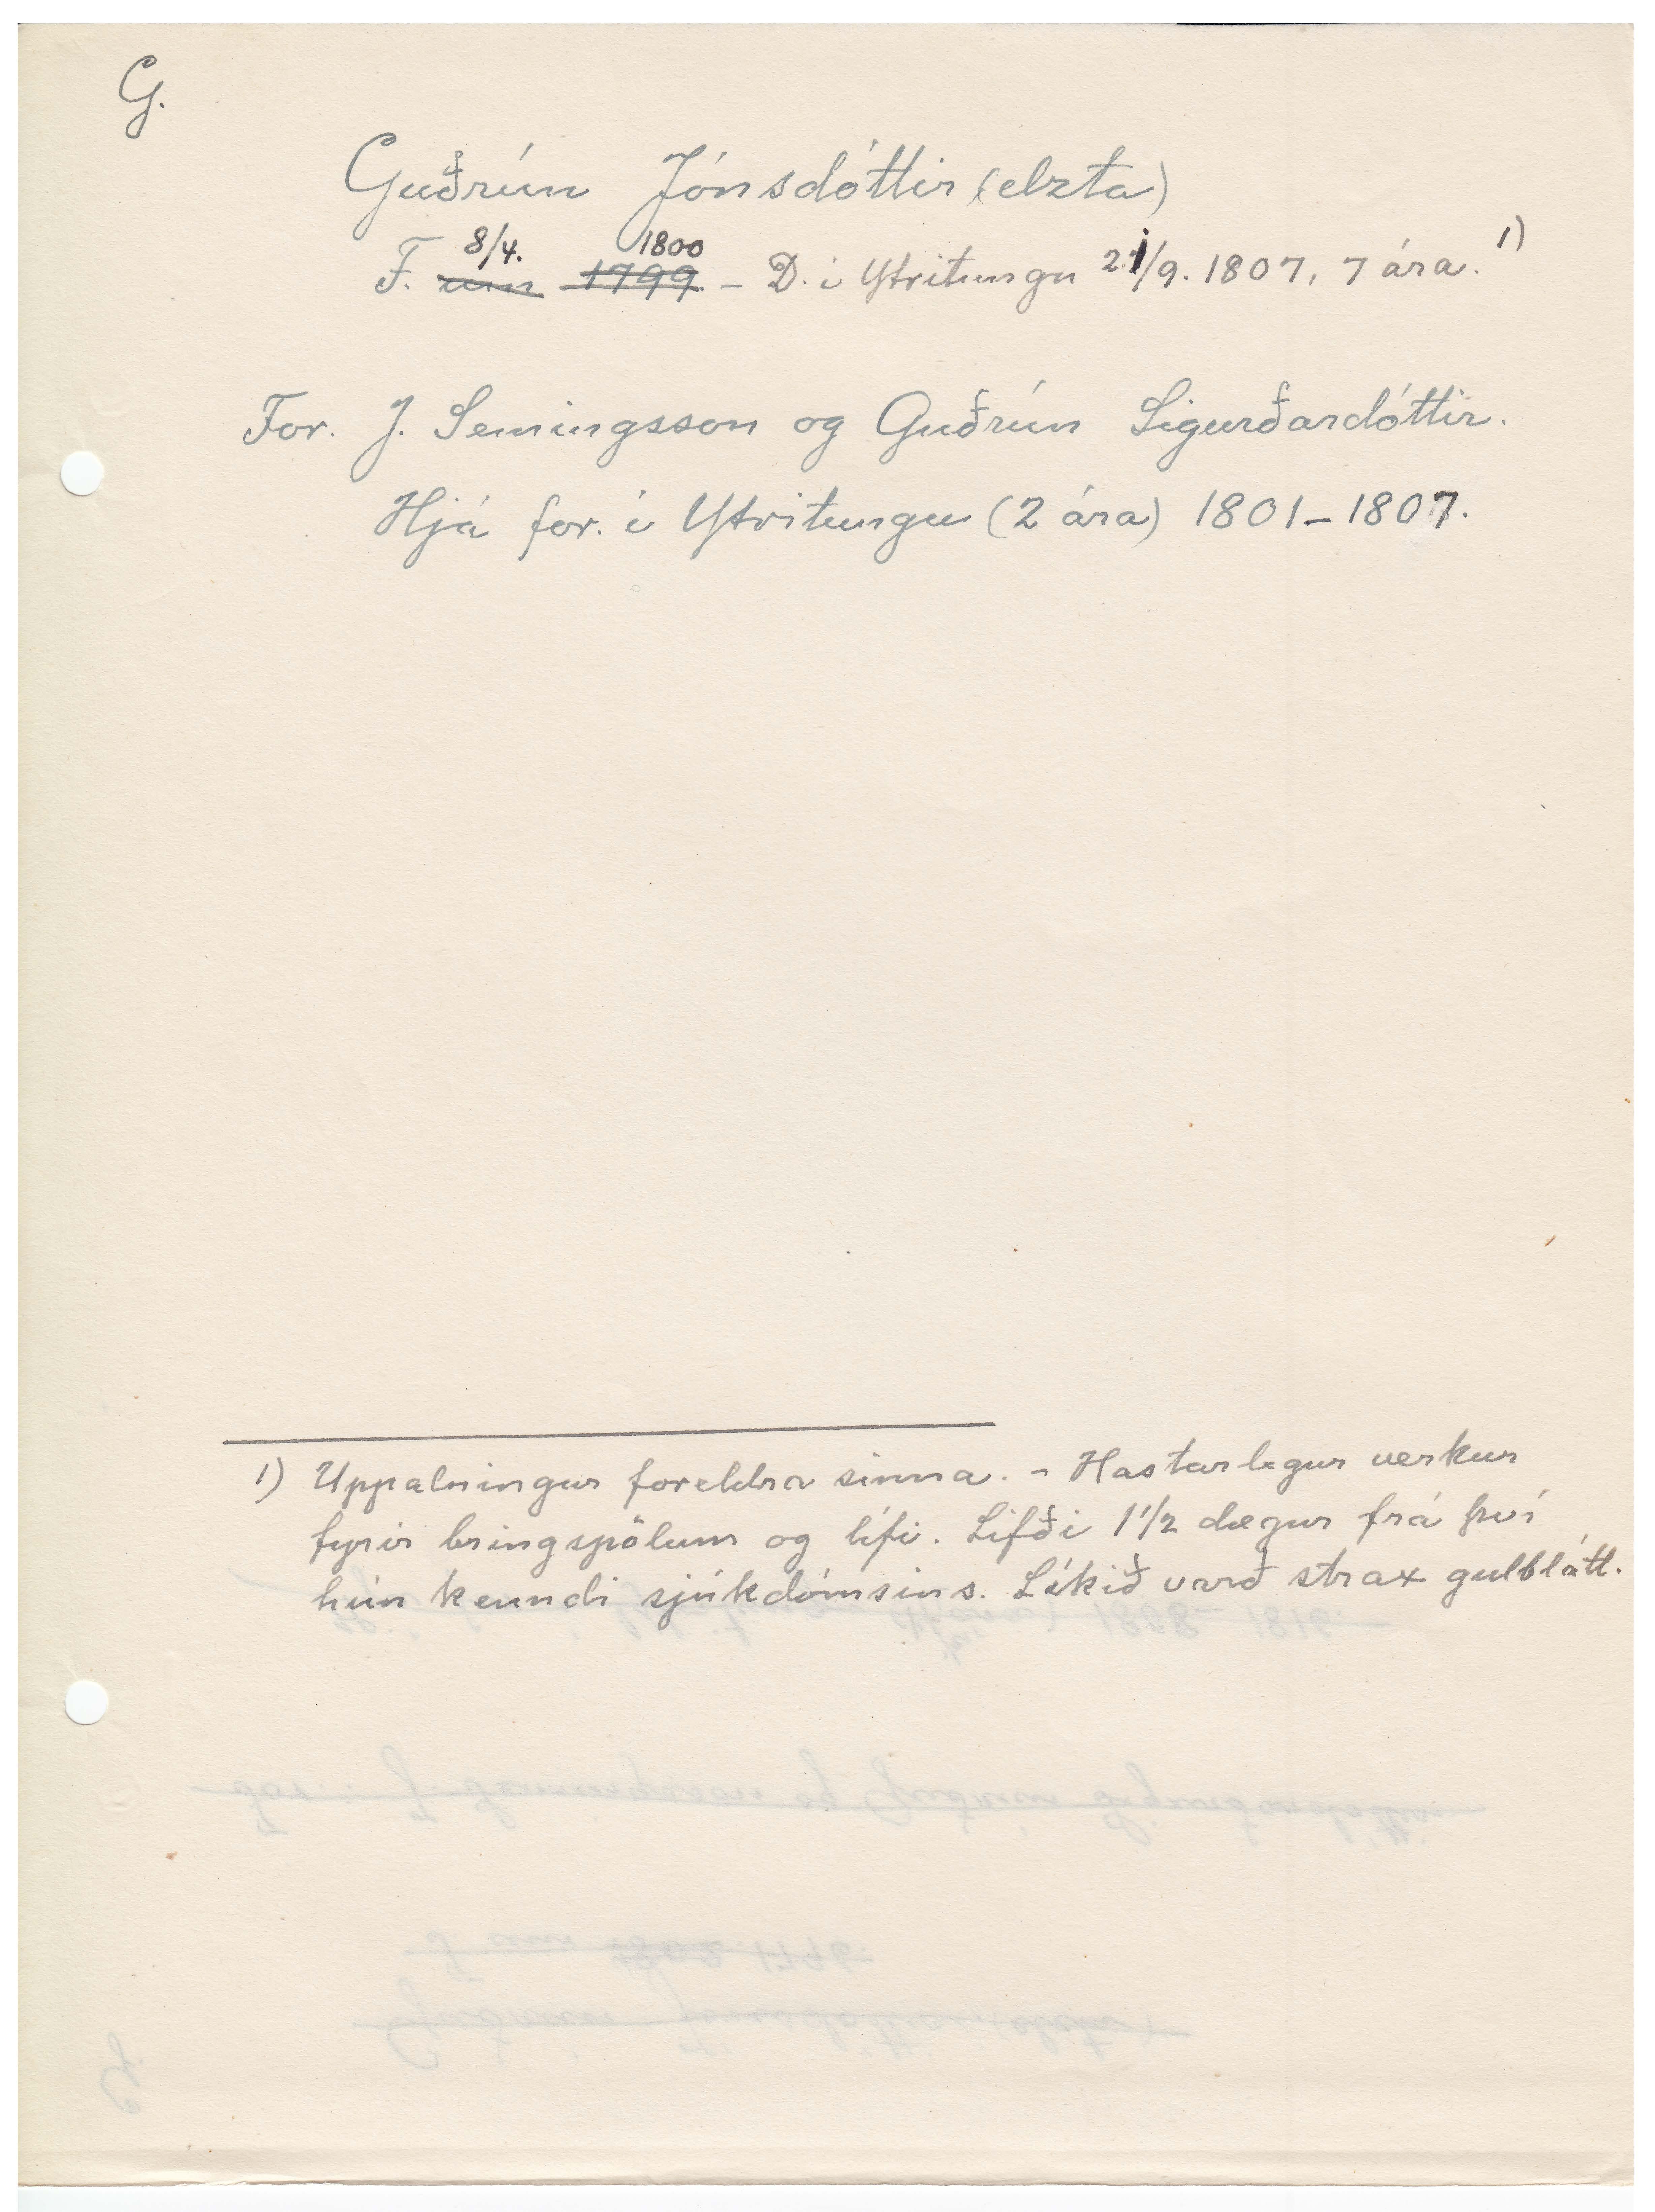 G.
Guðrún Jónsdóttir (elzta)
8/4. 1800
F. um 1799. – D. í Ytritungu 21/9. 1807, 7 ára. 1)
For. J. Semingsson og Guðrún Sigurðardóttir.
Hjá for. í Ytritungu (2 ára) 1801–1807.
1) Uppalningur foreldra sinna. – Hastarlegur verkur
fyrir bringspölum og lífi. Lifði 1 1/2 dægur frá því
hún kenndi sjúkdómsins. Líkið varð strax gulblátt.